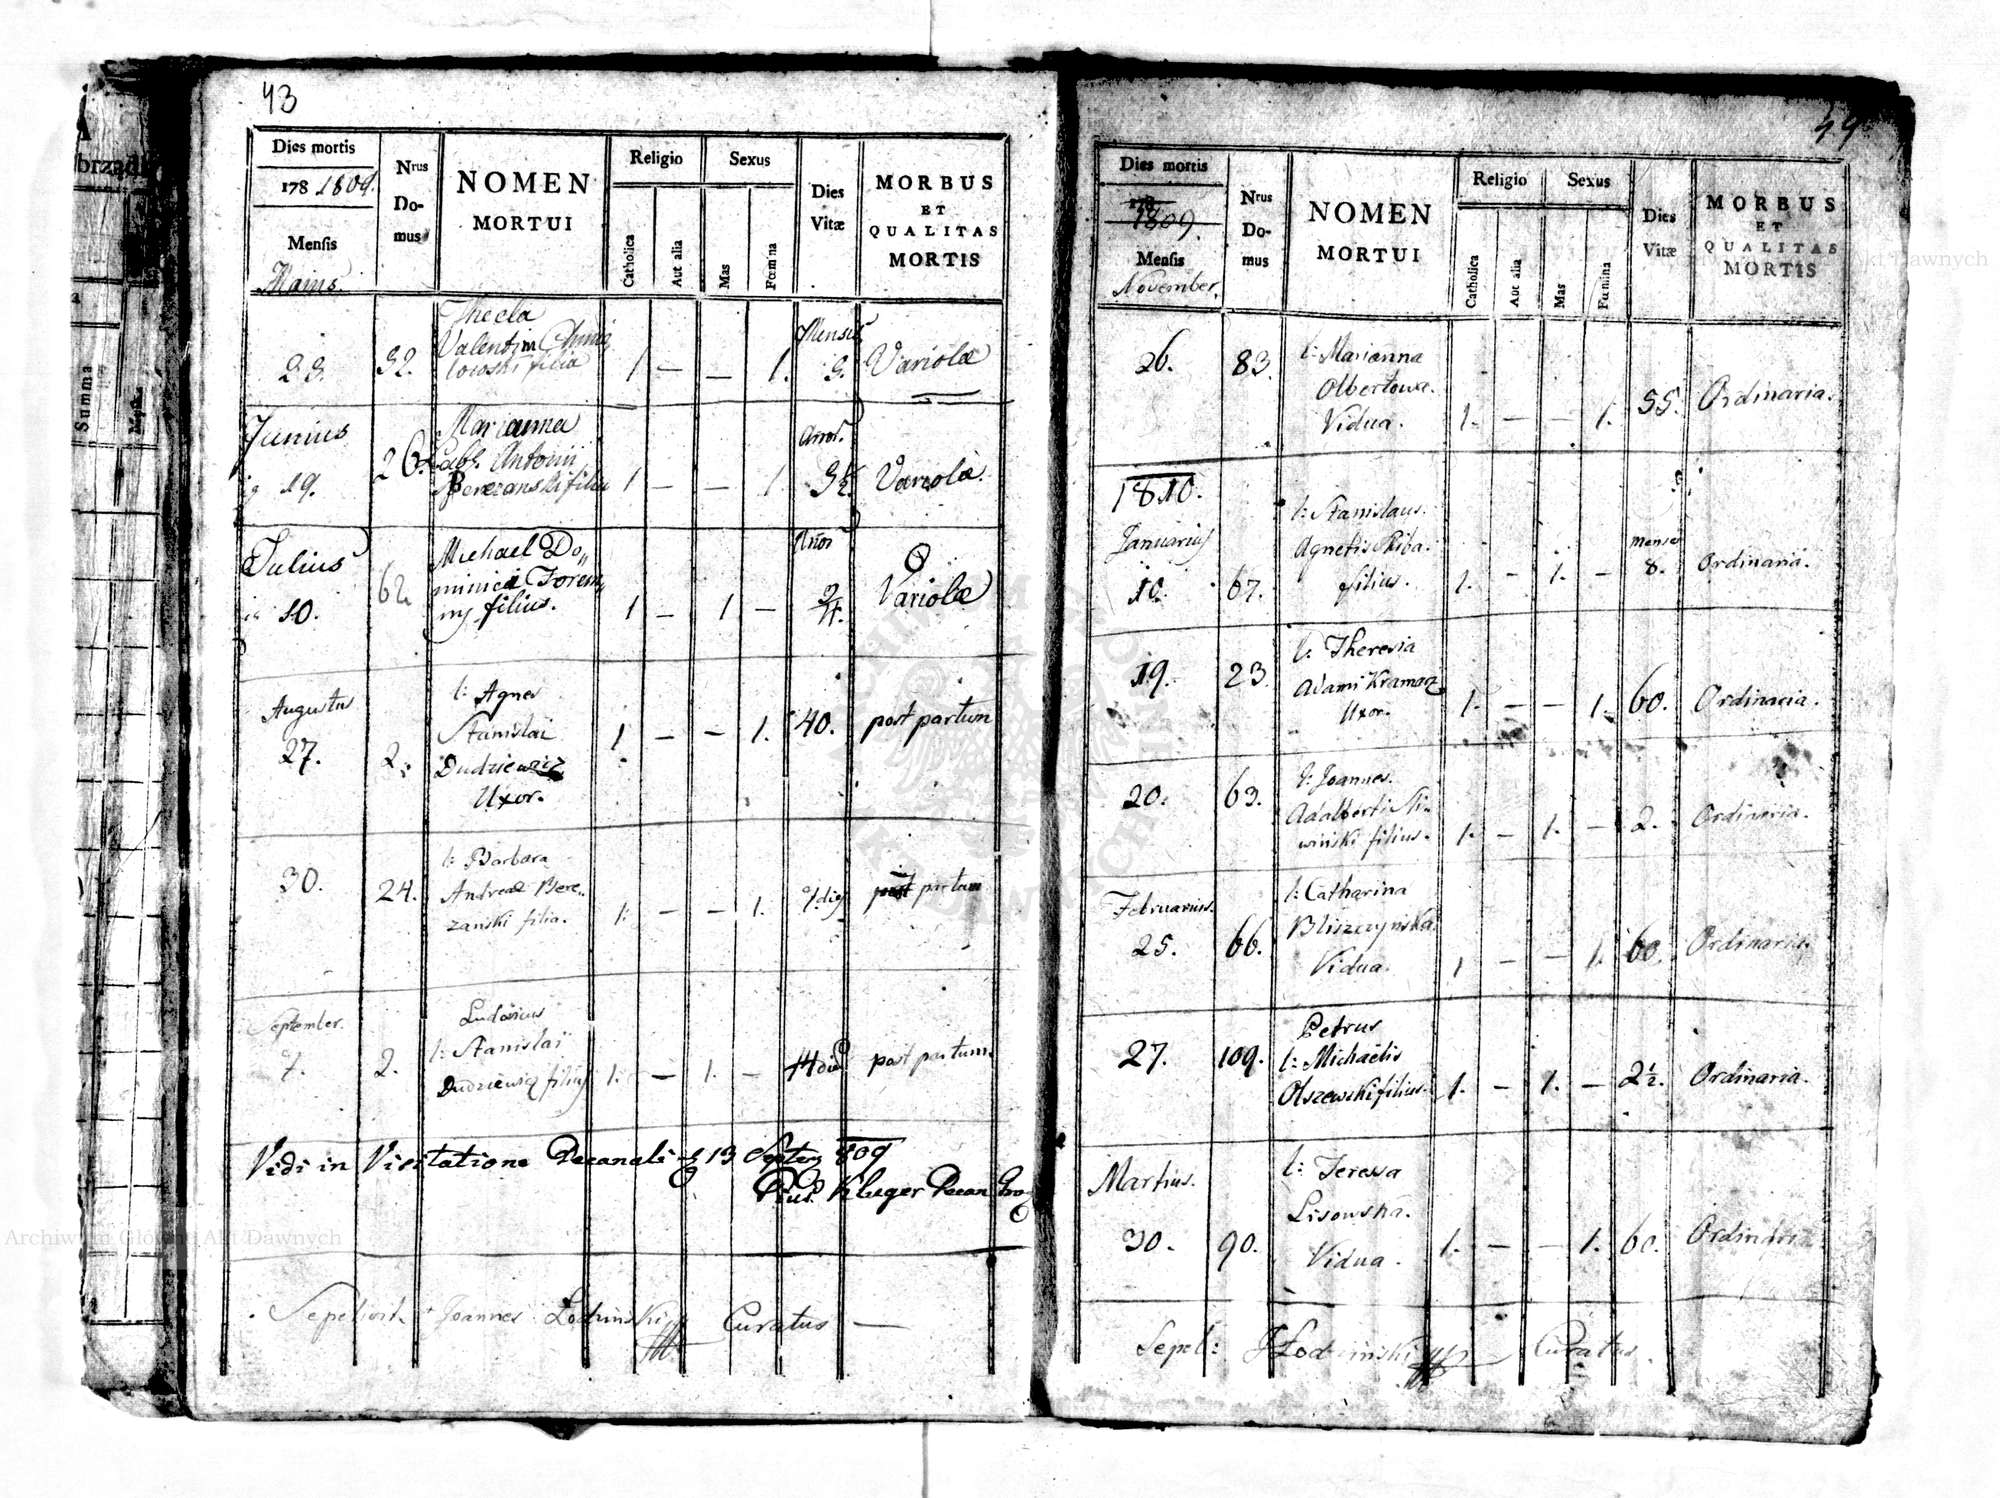 43
Dies mortis
178 1809.
Mensis
Maius.
Nrus
Do-
mus
NOMEN
MORTUI
Religio
Catholica
Aut alia
Sexus
Mas
Fœmina
Dies
Vitæ
MORBUS
ET
QUALITAS
MORTIS
23. 32.
Thecla
Valentini
filia
1 — — 1.
Mensis
3.
Variolæ
Junius
19. 26.
Marianna
Antonii
Berezanski filia
1 — — 1
Annor.
3½.
Variolæ.
Julius
10. 62
Michael Do„
minici Torem„
ny filius.
1 — 1 —
Annor
Variolæ
Augustus
27. 2.
l: Agnes
Stanislai
Dudziewicz
Uxor.
1 — — 1. 40. post partum
30. 24.
l: Barbara
Andreae Bere„
zanski filia.
1. — — 1. post partum
September.
7. 2.
Ludovicus
l: Stanislai
Dudziewicz filius
1. — 1. — 14 die post partum.
Vidi in Visitatione Decanali 13 Septem 809
Kluger Decan
Joannes Łodzinski Curatus —
44
Dies mortis
1809.
Mensis
November.
Nrus
Do-
mus
NOMEN
MORTUI
Religio
Catholica
Aut alia
Sexus
Mas
Fœmina
Dies
Vitæ
MORBUS
ET
QUALITAS
MORTIS
26. 83.
l: Marianna
Olbertowa.
Vidua.
1. — — 1. 55. Ordinaria.
1810.
Januarius
10. 67.
l: Stanislaus.
Agnetis Skiba.
filius.
1. — 1. —
Menses
8.
Ordinaria.
19. 23.
l: Theresia
Adami Kramarz
Uxor.
1. — — 1. 60. Ordinaria.
20. 63.
l: Joannes.
Adalberti
filius.
1. — 1. — 2. Ordinaria.
Februarius.
25. 66.
l: Catharina
Bliszczynska
Vidua.
1 — — 1. 60. Ordinaria.
27. 109.
Petrus
l: Michaelis
Olszewski filius.
1. — 1. — 2½. Ordinaria.
Martius.
30. 90.
l: Teressa
Lisowska.
Vidua.
1. — — 1. 60. Ordinaria
Sepel: J Łodzinski Curatus.
brządk
Summa
Archiwum Główne Akt Dawnych